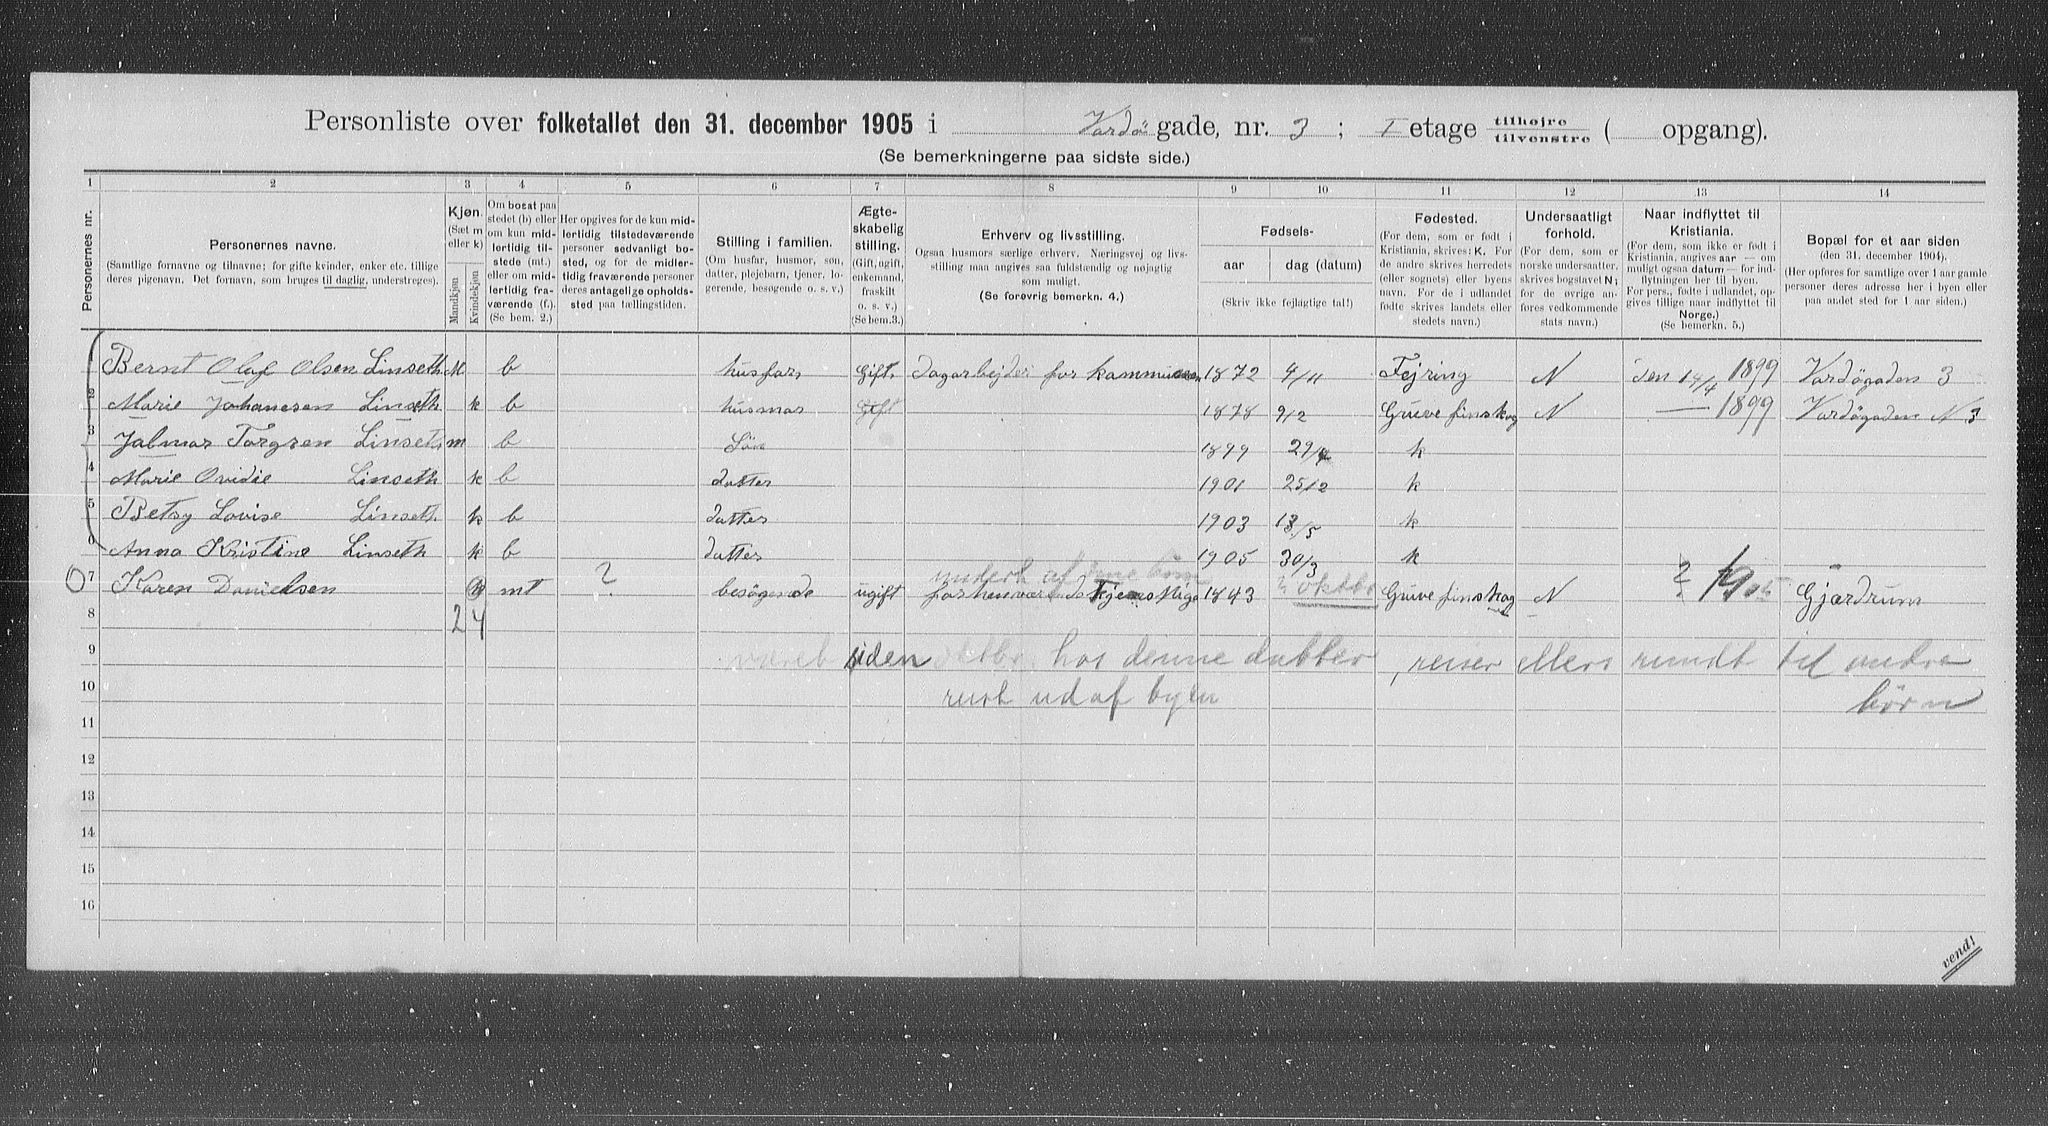 Personliste over folketallet den 31. december 1905 i Vardö gade, nr. 3 ; I etage tilhøjre tilvenstre ( opgang).
(Se bemerkningerne paa sidste side.)
1 2 3 4 5 6 7 8 9 10 11 12 13 14
Personernes nr.
Personernes navne.
(Samtlige fornavne og tilnavne; for gifte kvinder, enker etc. tillige
deres pigenavn. Det fornavn, som bruges til daglig, understreges).
Kjøn.
(Sæt m
eller k)
Mandkjøn
Kvindekjøn
Om bosat paa
stedet (b) eller
om kun mid-
lertidig til-
stede (mt.)
eller om mid-
lertidig fra-
værende (f.).
(Se bem. 2.)
Her opgives for de kun mid-
lertidig tilstedeværende
personer sedvanligt bo-
sted, og for de midler-
tidig fraværende personer
deres antagelige opholds-
sted paa tællingstiden.
Stilling i familien.
(Om husfar, husmor, søn,
datter, plejebarn, tjener, lo-
gerende, besøgende o. s. v.)
Ægte-
skabelig
stilling.
(Gift, ugift,
enkemand,
fraskilt
o. s. v.)
(Se bem.3.)
Erhverv og livsstilling.
Ogsaa husmors særlige erhverv. Næringsvej og livs-
stilling maa angives saa fuldstændig og nøjagtig
som muligt.
(Se forøvrig bemerkn. 4.)
Fødsels-
aar dag (datum)
(Skriv ikke fejlagtige tal!)
Fødested.
(For dem, som er født i
Kristiania, skrives: K. For
de andre skrives herredets
(eller sognets) eller byens
navn. For de i udlandet
fødte skrives landets eller
stedets navn.)
Undersaatligt
forhold.
(For dem, som er
norske undersaatter,
skrives bogstavet N;
for de øvrige an-
føres vedkommende
stats navn.)
Naar indflyttet til
Kristiania.
(For dem, som ikke er født i
Kristiania, angives aar — om
muligt ogsaa datum — for ind-
flytningen her til byen.
For pers., fødte i udlandet, op-
gives tillige naar indflyttet til
Norge.)
(Se bemerkn. 5.)
Bopæl for et aar siden
(den 31. december 1904).
(Her opføres for samtlige over 1 aar gamle
personer deres adresse her i byen eller
paa andet sted for 1 aar siden.)
1 Bernt Olaf Olsen Linseth M b husfar Gift Dagarbejder for kommunen 1872 4/11 Fejring N den 14/4 1899 Vardøgaden 3
2 Marie Johanesen Linseth k b husmor Gift 1878 9/2 Gruve finskog N — 1899 Vardøgaden N 3
3 Jalmar Torgren Linseth m b Sön 1899 29/4 k
4 Marie Ovidie Linseth k b datter 1901 25/12 k
5 Betsy Lovise Linseth k b datter 1903 13/5 k
6 Anna Kristine Linseth k b datter 1905 30/3 k
underh. af dene børn
7 Karen Danielsen k mt ? besögende ugift forhenværende Tjenestpige 1843 ? oktbr Gruve finskog N ? 1905 Gjærdrum
8 2 4
9 været siden oktbr. hos denne datter, reiser ellers rundt til andre
10 rust ud af byen børn
11
12
13
14
15
16
vend!